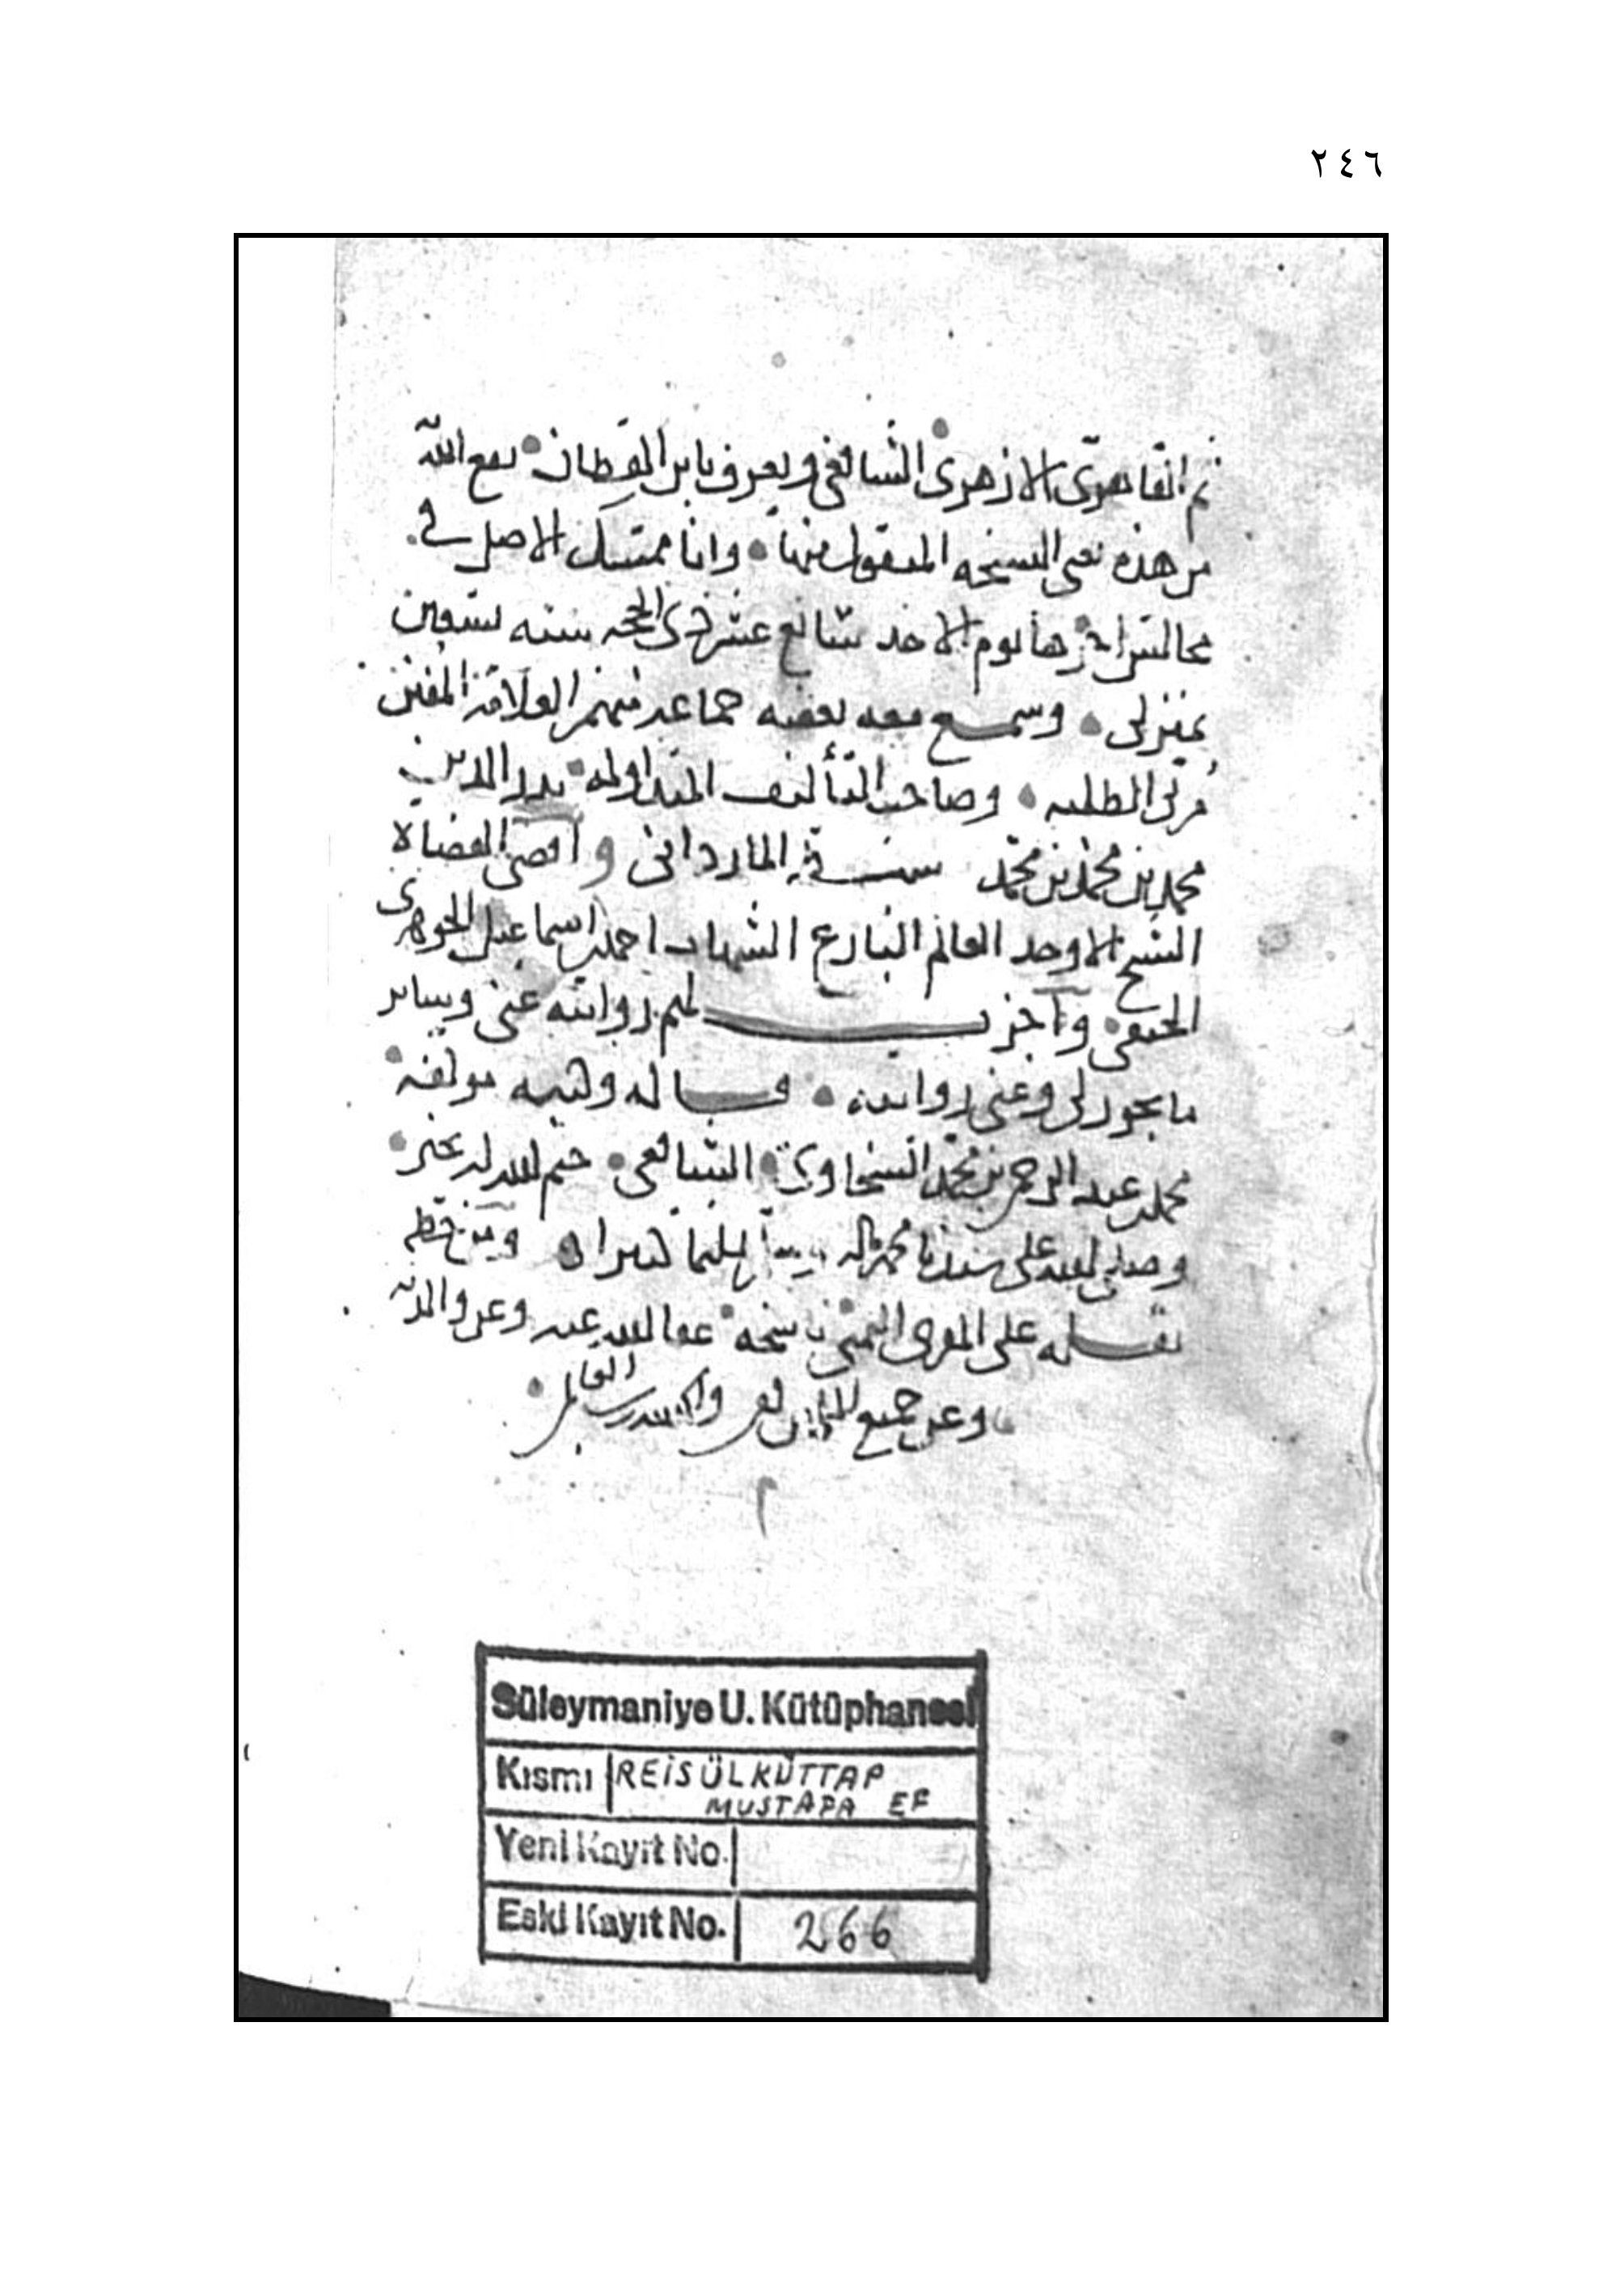 ٢٤٦
ثم القاهرى الازهرى الشافعى ويعرف بابن القطان نفع الله
من هذه يعنى النسخه المنقول منها وانا ممسك الاصل فى
مجالس اخرها يوم الاحد سابع عشر ذى الحجه سنه تسعين
بمنزلى وسمع معه بعضه جماعه منهم العلامة المفنن
مربى الطلبه وصاحب التآليف المتداوله بدر الدين
محمد بن محمد بن محمد الماردانى واقضى القضاة
الشيخ الاوحد العالم البارع الشهاب احمد بن اسماعيل الجوهرى
الحنفى واجزت لهم روايته عنى وساير
ما يجوز لى وعنى روايته قاله وكتبه مولفه
محمد بن عبد الرحمن بن محمد السخاوى الشافعى ختم الله له بخير
وصلى الله على سيدنا محمد واله وسلم تسليما كثيرا ومن خطه
نقله على المقرى اليمنى ناسخه عفا الله عنه وعن والديه
وعن جميع المسلمين
Süleymaniye U. Kütüphanesi
Kısmı REİSÜLKÜTTAP
MUSTAFA EF
Yeni Kayıt No.
Eski Kayıt No. 266